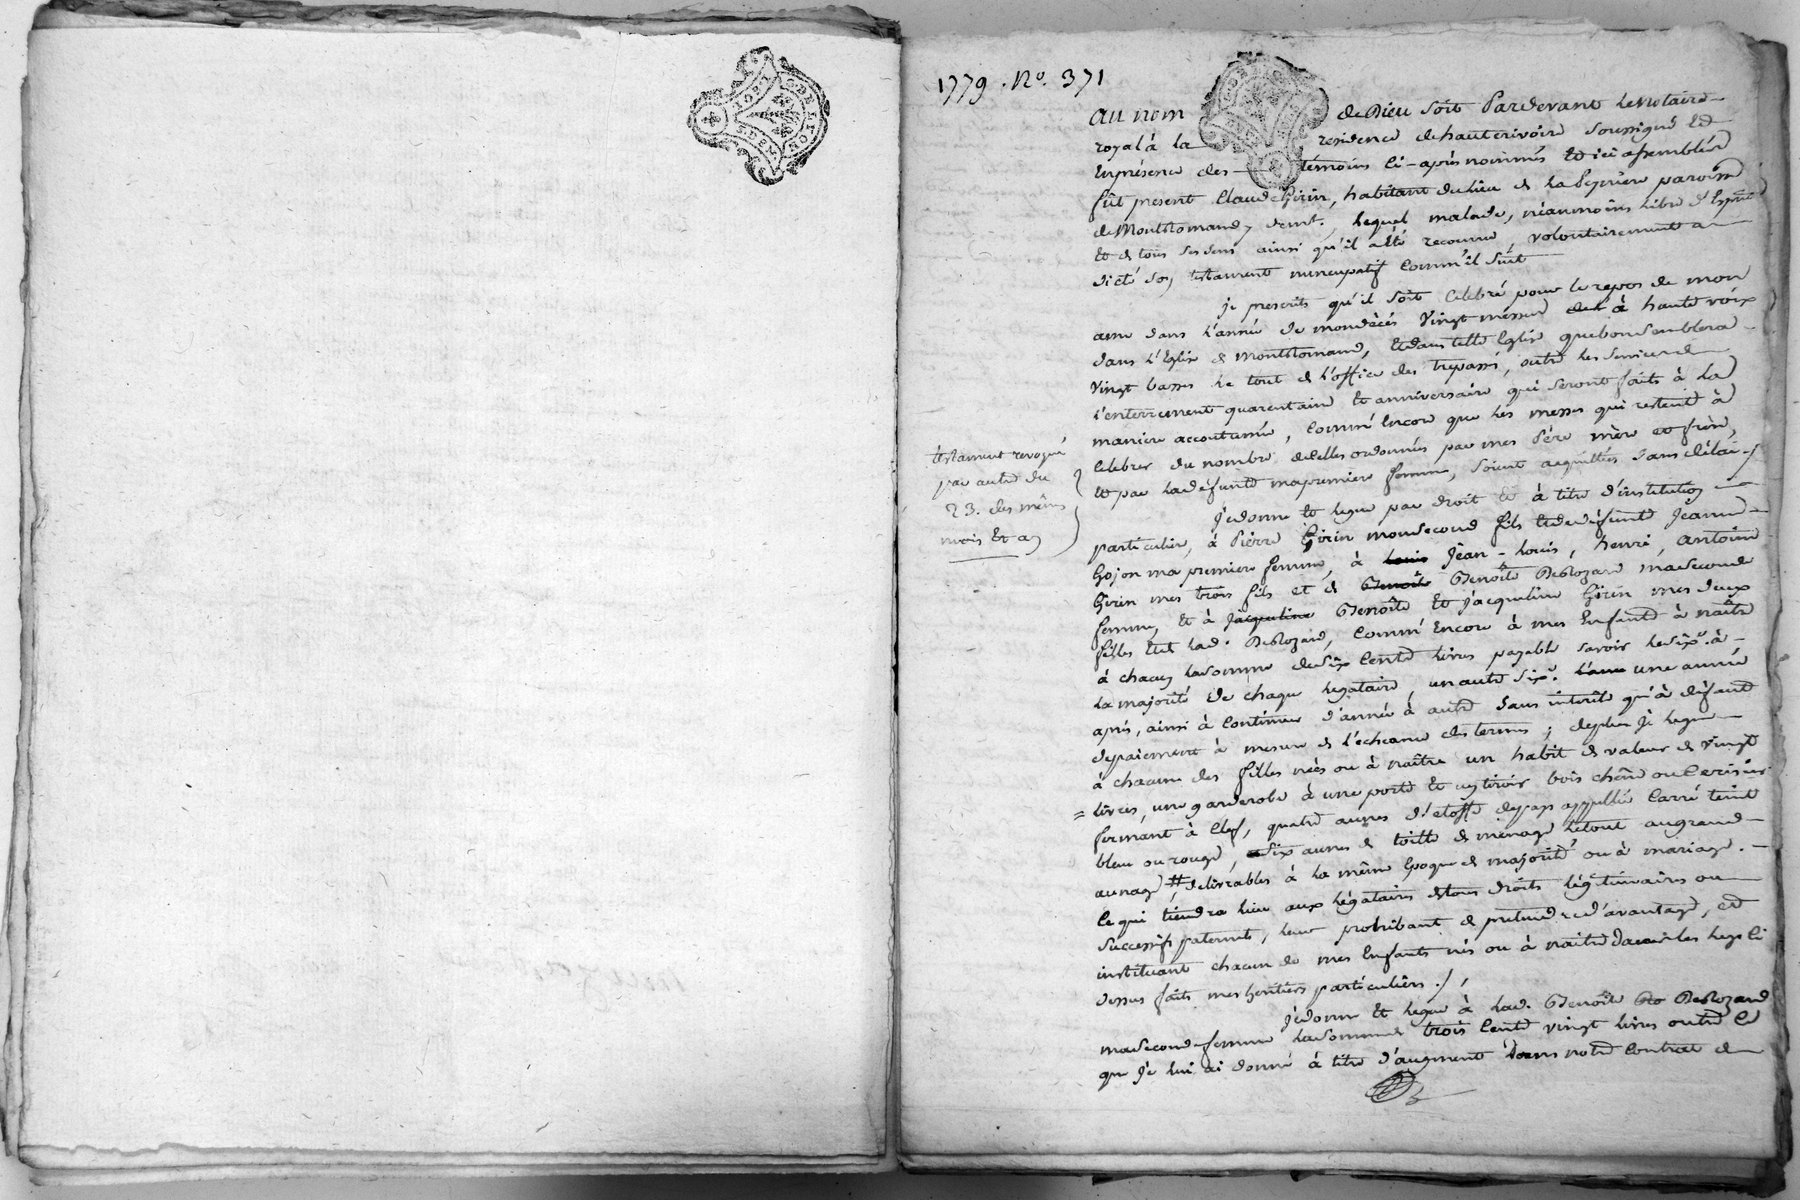 1779 . No. 371
au nom de Dieu soit Pardevant le notaire
royal à la residence de hauterivoire soussigné Et
En présence des témoins ci-après nommés Et ici assemblés
fût présent Claude Girin, habitant du lieu de la paroisse
de Montromand, lequel malade, néanmoins libre d'Esprit
et de tous ses sens ainsi qu'il a été reconnu, volontairement a
dicté son testament nuncupatif comm'il suit
je prescrits qu'il soit celebré pour le repos de mon
ame dans l'année de mon décès vingt messes à haute voix
dans l'Eglise de Montromand, Et dans telle Eglise que bon semblera
vingt basses le tout de l'office des trepassés, outre les services de
l'enterrement quarentaine Et anniversaire qui seront faits à la
maniere accoutumée, comm'encore que les messes qui restent à
celebrer du nombre de celles ordonnées par mes Père mère et frère,
Et par la defunte ma premiere femme, soient acquittées sans délai ./
testament revoqué
par autre du
23. des mêmes
mois Et an
je donne Et legue par droit Et à titre d'institution
particuliere, à Pierre Girin mon second fils Et de defunte Jeanne
Gojon ma premiere femme, à Louis Jean-Louis, henri, antoine
Girin mes trois fils et de Benoîte Benoîte Deblozard ma seconde
femme, Et à Jacqueline Benoîte Et Jacqueline Girin mes deux
filles Et de lad. Deblozard, comm'Encore à mes Enfants à naître
à chacun la somme de six cents livres payable savoir le dixe. à
la majorité de chaque legataire, un autre dixe. une année
après, ainsi à continuer d'année à autre sans interêts qu'à défaut
de paiement à mesure de l'echeance des termes ; de plus je legue
à chacune des filles nées ou à naître un habit de valeur de vingt
= livres, une garderobe à une porte Et un tiroir bois chêne ou cerisier
fermant à clef, quatre aunes d'etoffe de pays appellée carré teint
bleu ou rouge, six aunes de toille de ménage le tout au grand
aunage # délivrables à la même Epoque de majorité ou à mariage.
ce qui tiendra lieu aux légataires de tous droits légitimaires ou
successifs paternels, leur prohibant de prétendre d'avantage, et
instituant chacun de mes Enfants nés ou à naître dans les legs ci
dessus faits mes heritiers particuliers ./
je donne Et legue à lad. Benoîte Deblozard
ma seconde femme la somme trois cents vingt livres outre ce
que je lui ai donné à titre d'augment dans notre contrat de